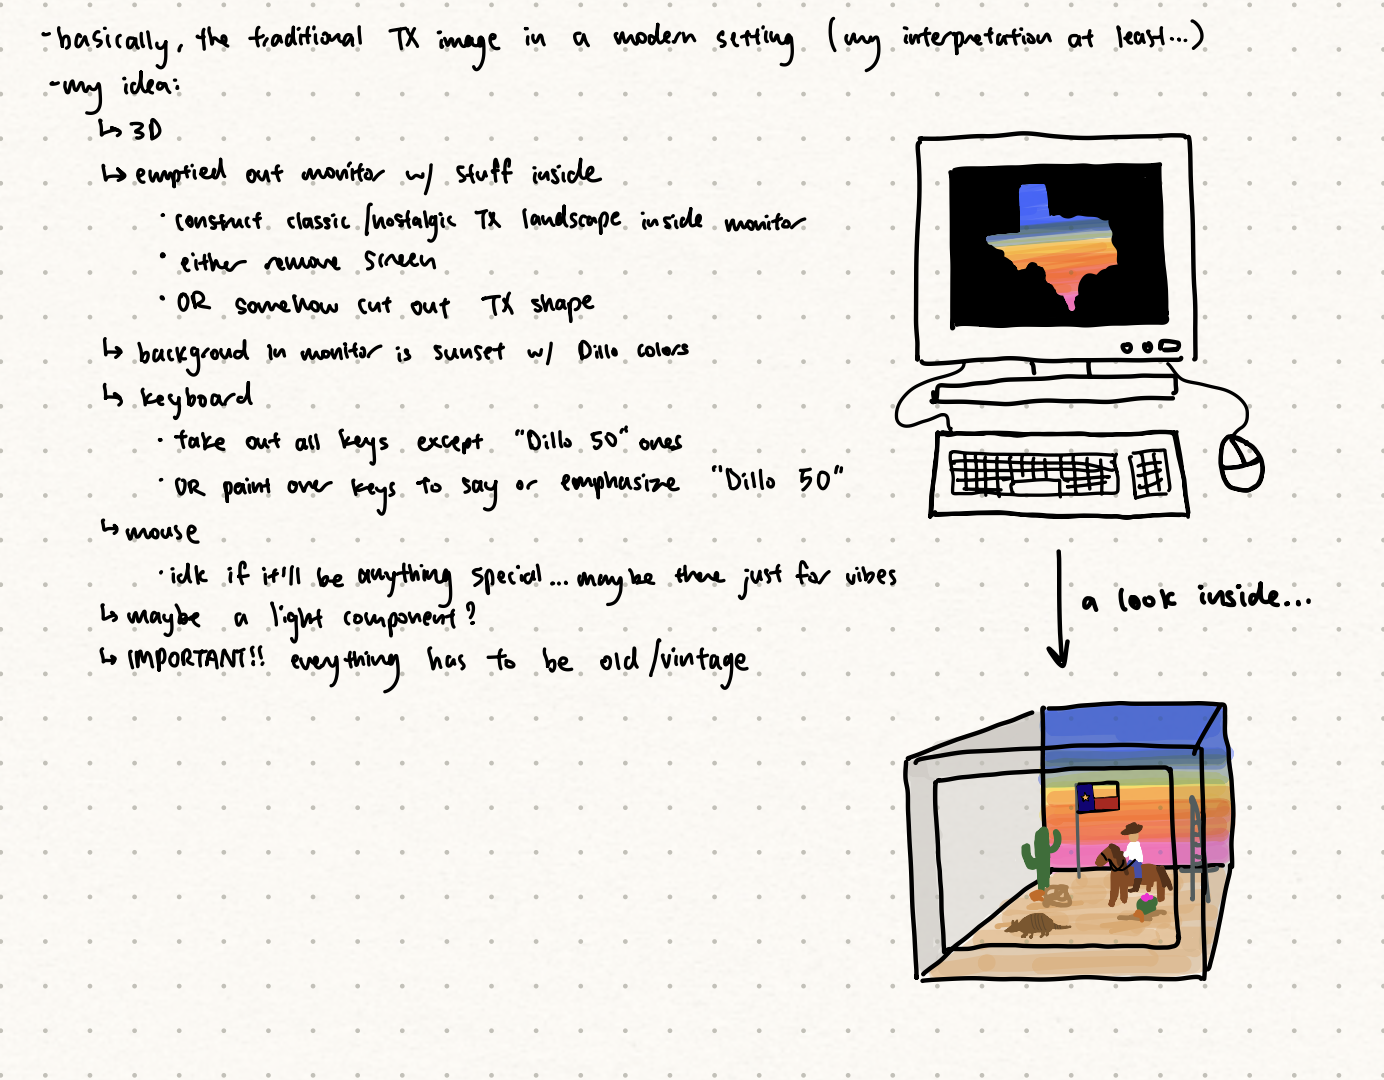 -basically, the traditional TX image in a modern setting (my interpretation at least...)
-my idea:
↳ 3D
↳ emptied out monitor w/ stuff inside
· construct classic/nostalgic TX landscape inside monitor
· either remove screen
· OR somehow cut out TX shape
↳ backgroud in monitor is sunset w/ Dillo colors
↳ keyboard
· take out all keys except "Dillo 50" ones
· OR paint over keys to say or emphasize "Dillo 50"
↳ mouse
· idk if it'll be anything special... maybe there just for vibes
↳ maybe a light component?
↳ IMPORTANT!! everything has to be old/vintage
a look inside...